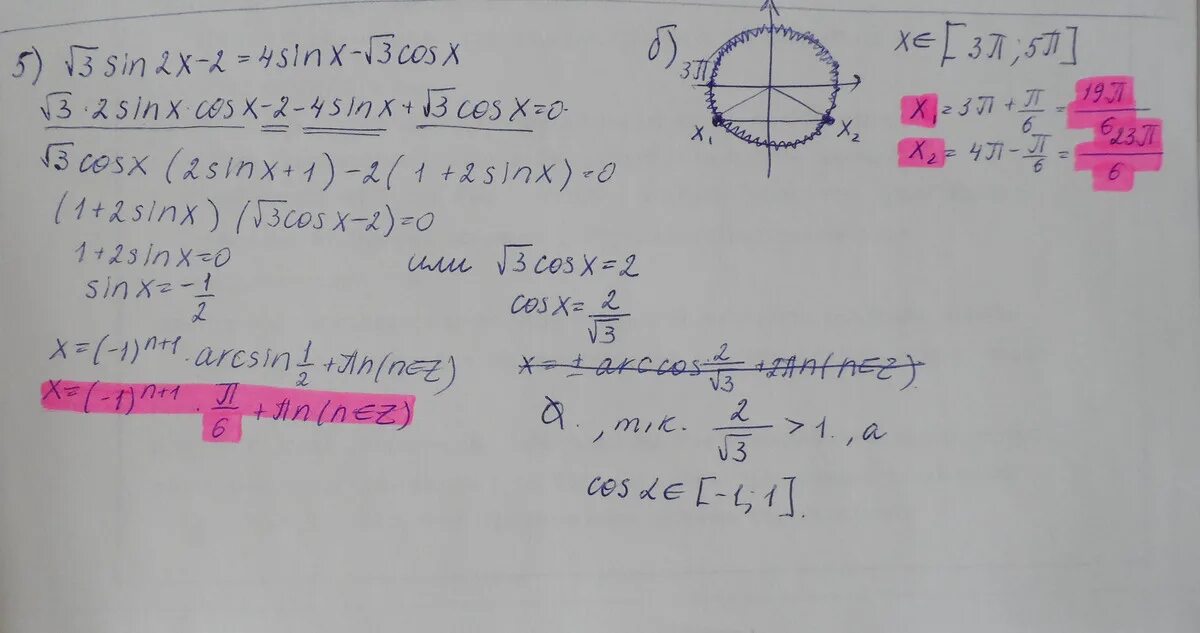 5) √3 sin 2x - 2 = 4 sin x - √3 cos x
√3 · 2 sin x · cos x - 2 - 4 sin x + √3 cos x = 0
√3 cos x (2 sin x + 1) - 2 (1 + 2 sin x) = 0
(1 + 2 sin x) (√3 cos x - 2) = 0
1 + 2 sin x = 0 или √3 cos x = 2
sin x = - 1/2
cos x = 2/√3
x = (-1)ⁿ⁺¹ · arcsin 1/2 + πn (n ∈ Z)
x = ± arccos 2/√3 + 2πn (n ∈ Z).
x = (-1)ⁿ⁺¹ · π/6 + πn (n ∈ Z)
Ø., т.к. 2/√3 > 1., а
cos α ∈ [-1; 1].
б)
3π
x₁
x₂
x ∈ [3π; 5π]
x₁ = 3π + π/6 = 19π/6
x₂ = 4π - π/6 = 23π/6